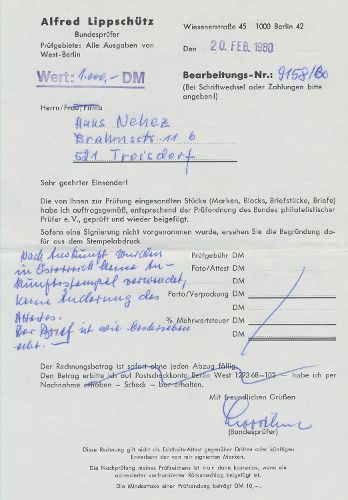 Alfred Lippschütz
Bundesprüfer
Prüfgebiete: Alle Ausgaben von
West-Berlin
Wiesenerstraße 45 · 1000 Berlin 42
Den 20. FEB. 1980
Wert: 1.000,- DM
Bearbeitungs-Nr.: 9158/80
(Bei Schriftwechsel oder Zahlungen bitte
angeben!)
Herrn/Frau/Firma
Hans Nehez
Brahmsstr. 11 b
521 Troisdorf
Sehr geehrter Einsender!
Die von Ihnen zur Prüfung eingesandten Stücke (Marken, Blocks, Briefstücke, Briefe)
habe ich auftragsgemäß, entsprechend der Prüfordnung des Bundes philatelistischer
Prüfer e.V., geprüft und wieder beigefügt.
Sofern eine Signierung nicht vorgenommen wurde, ersehen Sie die Begründung da-
für aus dem Stempelabdruck.
Nach Auskunft wurden
in Österreich keine An-
kunftsstempel verwendet,
keine Änderung des
Attestes.
Der Brief ist wie
echt.
Prüfgebühr DM
Foto/Attest DM
DM
Porto/Verpackung DM
DM
% Mehrwertsteuer DM
DM
Der Rechnungsbetrag ist sofort ohne jeden Abzug fällig.
Den Betrag erbitte ich auf Postscheckkonto Berlin West 1393 68-102 — habe ich per
Nachnahme erhoben — Scheck — bar erhalten.
Mit freundlichen Grüßen
(Bundesprüfer)
Diese Rechnung gilt nicht als Echtheits-Attest gegenüber Dritten oder künftigen
Erwerbern der von mir signierten Marken.
Die Nachprüfung meines Prüfzeichens ist nur dann kostenlos, wenn ein
adressierter vorfrankierter Rückumschlag beigefügt ist.
Die Mindesttaxe einer Prüfsendung beträgt DM 10,—.